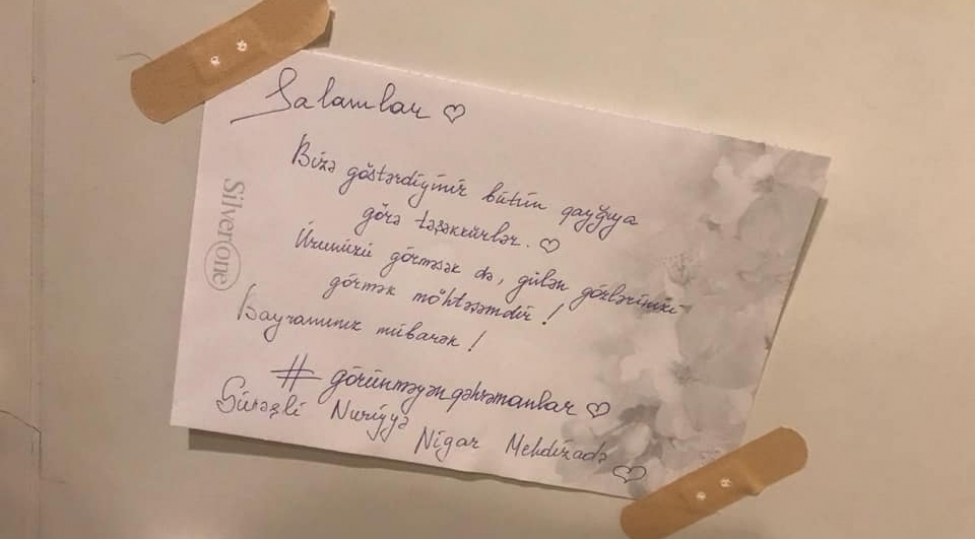 Salamlar ♡
Bizə göstərdiyiniz bütün qayğıya
görə təşəkkürlər. ♡
Üzünüzü görməsək də, gülən gözlərinizi
görmək möhtəşəmdir!
Bayramınız mübarək!
# görünməyənqəhrəmanlar ♡
Nuriyyə
Nigar Mehdizadə ♡
Silver one